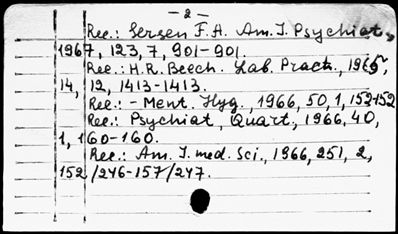 - 2 -
Rec.: Jersen F.A. Am. J. Psychiat.,
1967, 123, 7, 901-901.
Rec.: H.R. Beech. Lab. Pract., 1965,
14, 12, 1413-1413.
Rec.: - Ment. Hyg., 1966, 50, 1, 152-152
Rec.: Psychiat. Quart., 1966, 40,
1, 160-160.
Rec.: Am. J. med. Sci., 1966, 251, 2,
152/246-157/247.